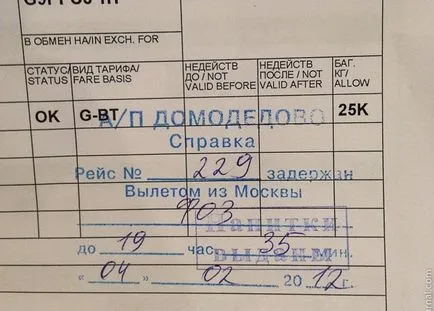 В ОБМЕН НА/IN EXCH. FOR
СТАТУС/ STATUS ВИД ТАРИФА/ FARE BASIS НЕДЕЙСТВ ДО / NOT VALID BEFORE НЕДЕЙСТВ ПОСЛЕ / NOT VALID AFTER БАГ. КГ/ ALLOW
OK G-BT 25K
А/П ДОМОДЕДОВО
Справка
Рейс № 229 задержан
Вылетом из Москвы
903
Напитки
выданы
до 19 час. 35 мин.
"04" 02 2012 г.